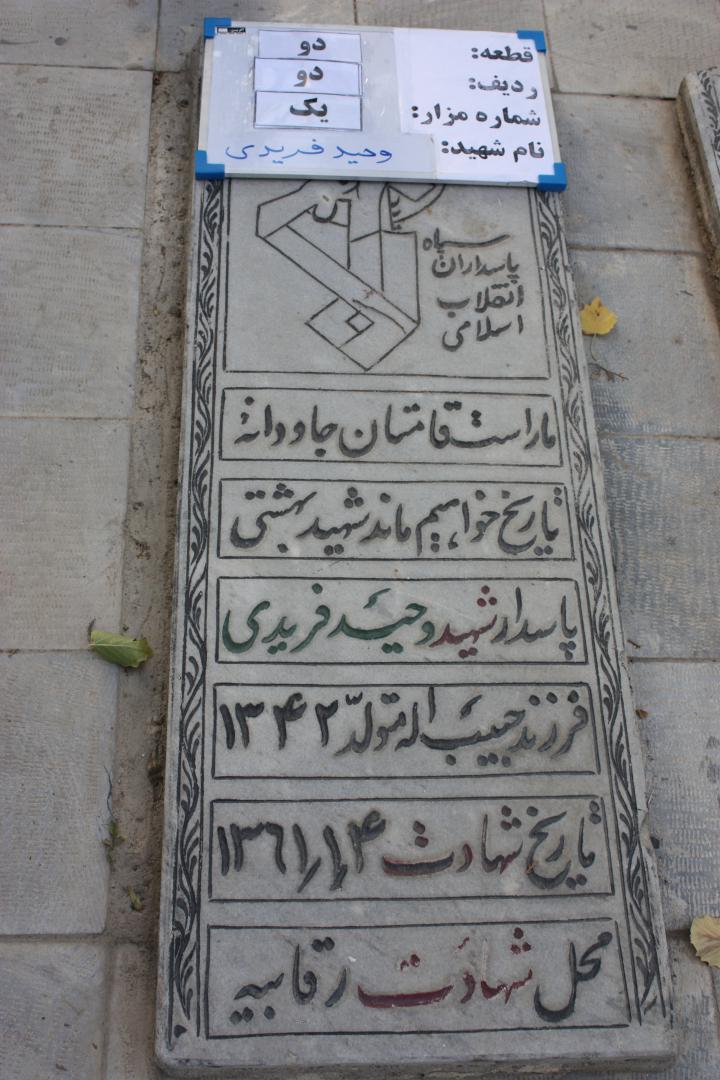 قطعه: دو
ردیف: دو
شماره مزار: یک
نام شهید: وحید فریدی
سپاه
پاسداران
انقلاب
اسلامی
ما راست قامتان جاودانهٔ
تاریخ خواهیم ماند شهید بهشتی
پاسدار شهید وحید فریدی
فرزند حبیب اله متولّد ۱۳۴۲
تاریخ شهادت ۱۳۶۱/۱/۴
محل شهادت رقابیه